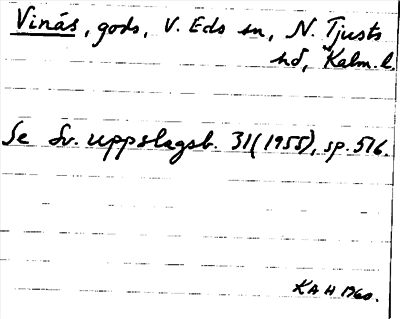 Vinäs, gods, V. Eds sn, N. Tjusts
hd, Kalm. l.
Se Sv. uppslagsb. 31(1955), sp. 516.
KAH 1960.